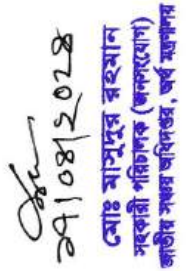 ২৭/০৪/২০২৪
মোঃ মাসুদুর রহমান
সহকারী পরিচালক (জনসংযোগ)
জাতীয় সঞ্চয় অধিদপ্তর, অর্থ মন্ত্রণালয়